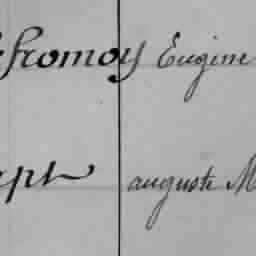 fromoy Eugine
ept auguste M